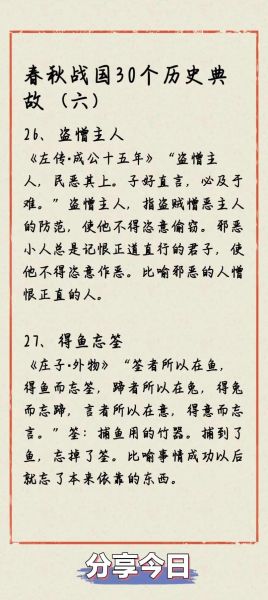 春秋战国30个历史典
故（六）
26、盗憎主人
《左传·成公十五年》“盗憎主
人，民恶其上。子好直言，必及于
难。”盗憎主人，指盗贼憎恶主人
的防范，使他不得恣意偷窃。邪恶
小人总是记恨正道直行的君子，使
他不得恣意作恶。比喻邪恶的人憎
恨正直的人。
27、得鱼忘筌
《庄子·外物》“筌者所以在鱼，
得鱼而忘筌，蹄者所以在兔，得兔
而忘蹄，言者所以在意，得意而忘
言。”筌：捕鱼用的竹器。捕到了
鱼，忘掉了筌。比喻事情成功以后
就忘了本来依靠的东西。
分享今日